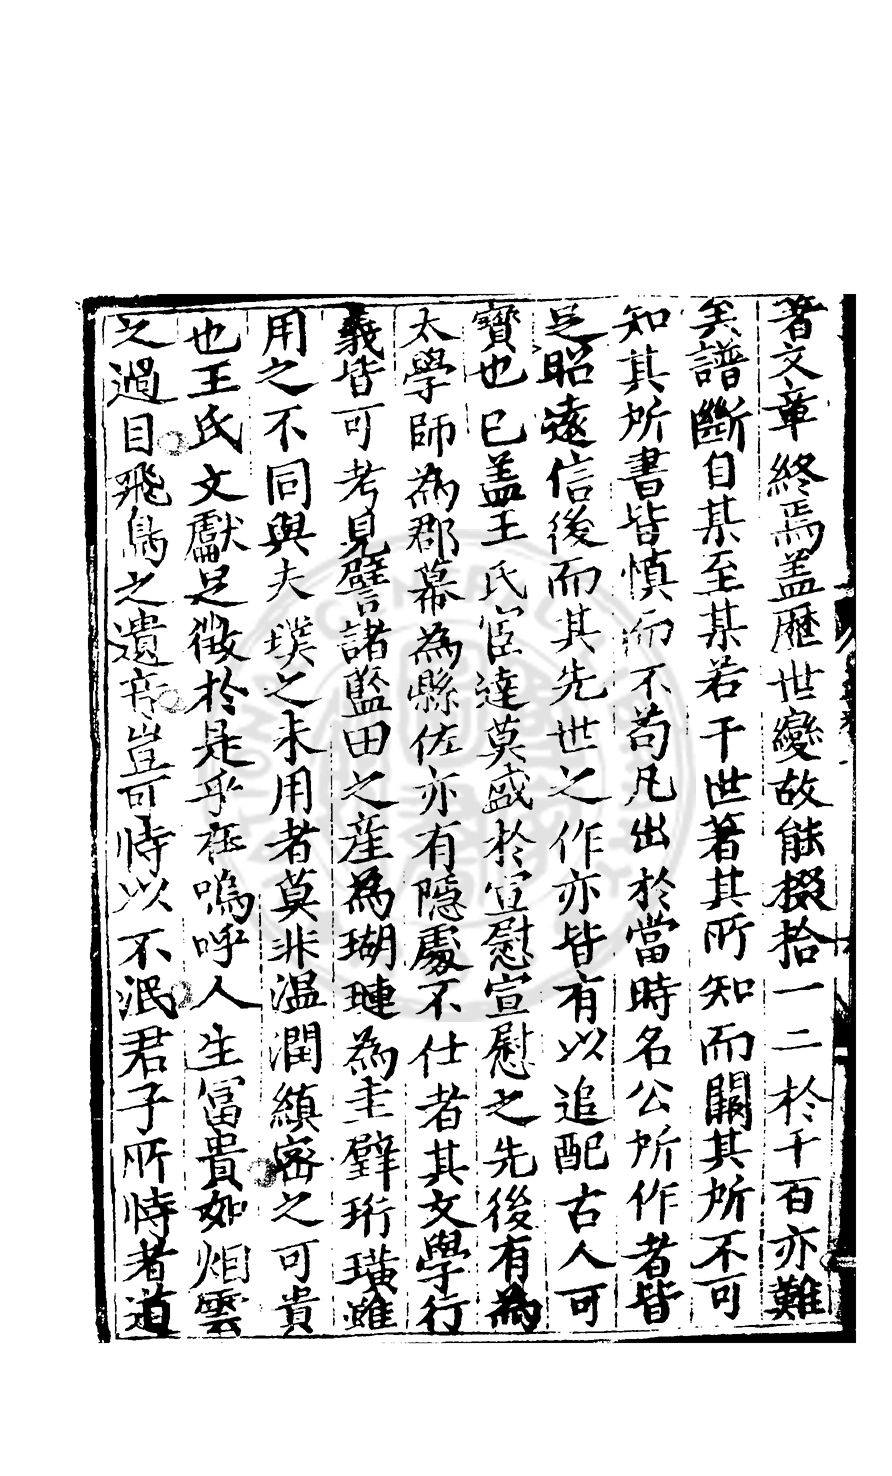 著文章終焉盖歷世變故能掇拾一二於千百亦難
矣譜斷自某至某若干世著其所知而闕其所不可
知其所書皆慎而不苟凡出於當時名公所作者皆
足昭遠信後而其先世之作亦皆有以追配古人可
寳也已盖王氏宦達莫盛於宣慰宣慰之先後有為
太學師為郡幕為縣佐亦有隱處不仕者其文學行
義皆可考見譬諸藍田之産為瑚璉為圭璧珩璜雖
用之不同與夫璞之未用者莫非温潤縝密之可貴
也王氏文獻足徵於是乎在嗚呼人生冨貴如烟雲
之過目飛鳥之遺音豈可恃以不泯君子所恃者道